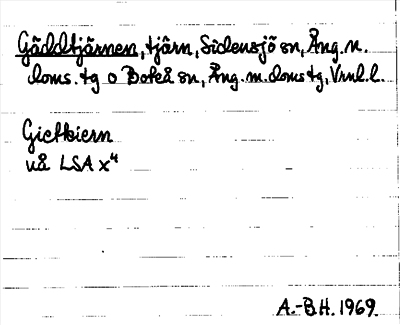 Gäddtjärnen, tjärn, Sidensjö sn, Ång. n.
doms. tg o Boteå sn, Ång. m. doms tg, Vrnl. l.
Gieftkiern
uå LSA x⁴
A.-B.H. 1969